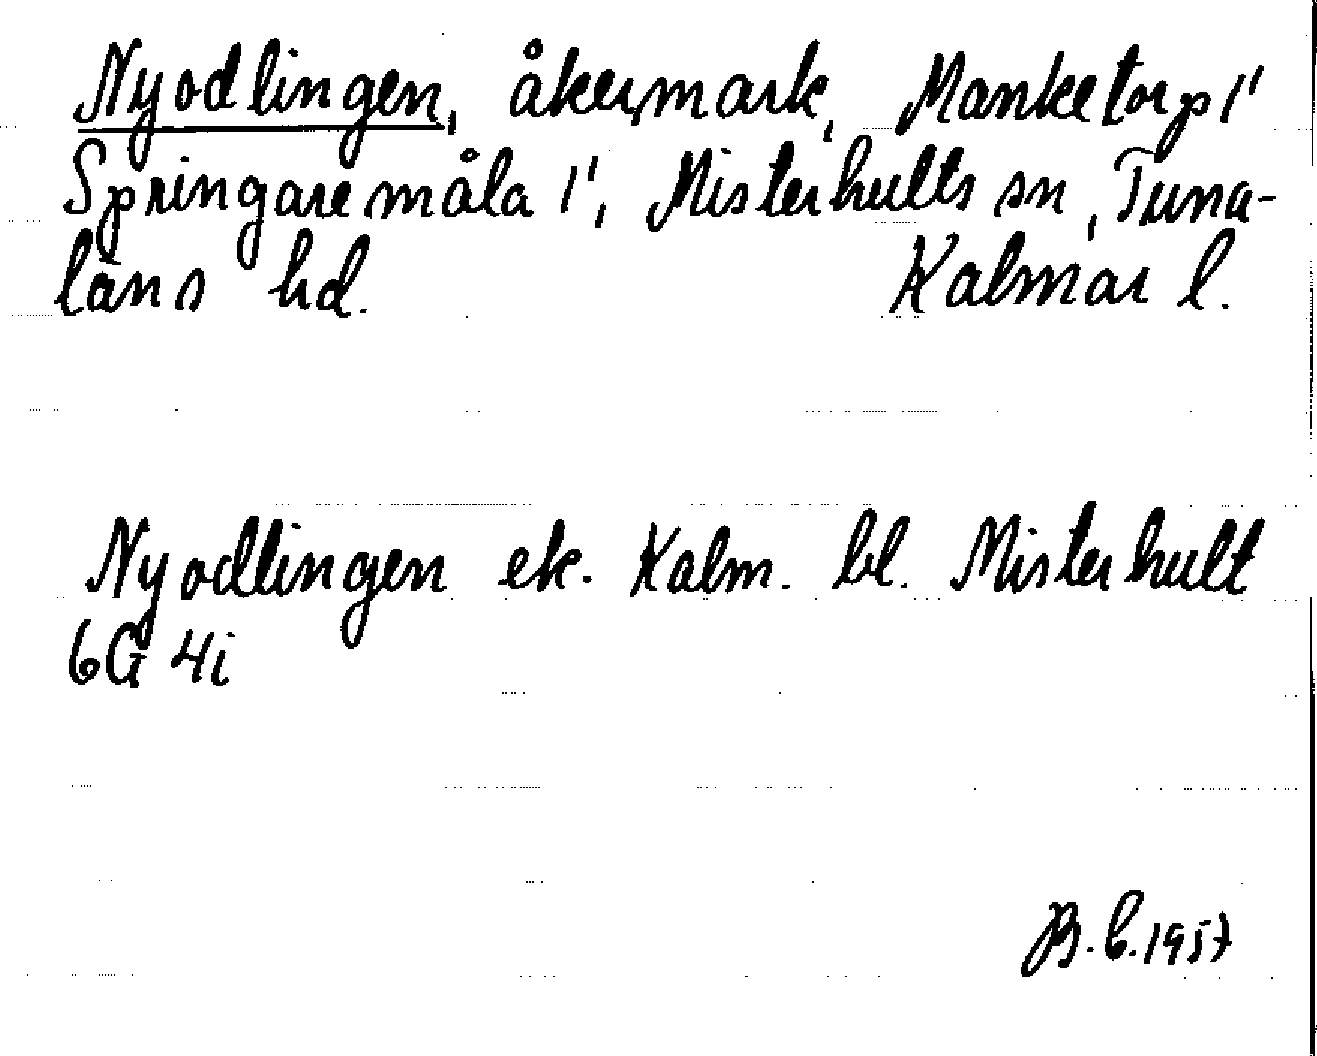 Nyodlingen, åkermark, Manketorp 1¹
Springaremåla 1¹, Misterhults sn, Tuna-
läns hd. Kalmar l.
Nyodlingen ek. Kalm. bl. Misterhult
6G 4i
B.C.1957